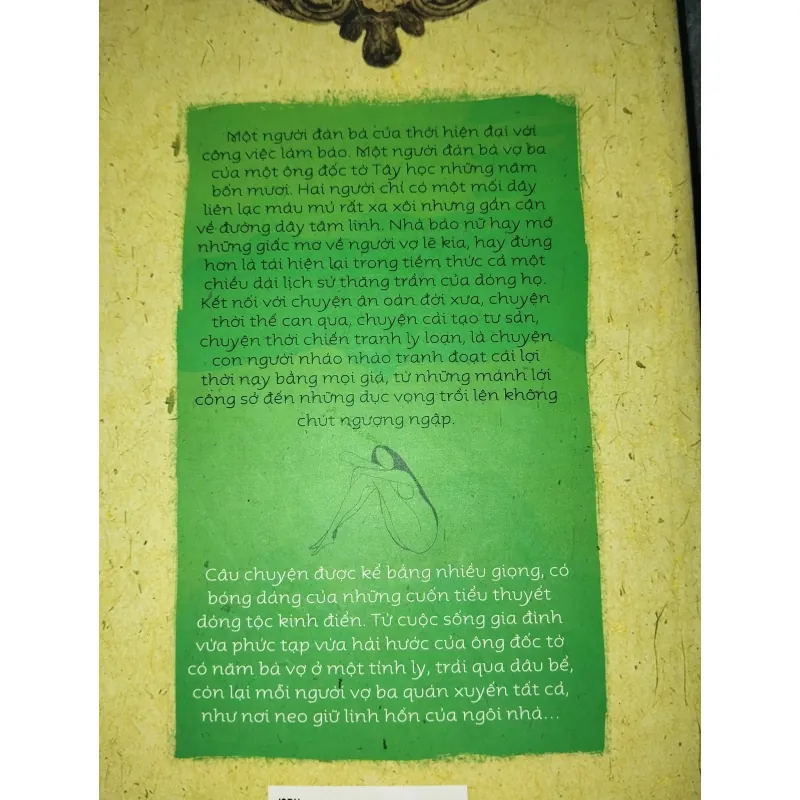 Một người đàn bà của thời hiện đại với
công việc làm báo. Một người đàn bà vợ ba
của một ông đốc tờ Tây học những năm
bốn mươi. Hai người chỉ có một mối dây
liên lạc máu mủ rất xa xôi nhưng gần cận
về đường dây tâm linh. Nhà báo nữ hay mơ
những giấc mơ về người vợ lẽ kia, hay đúng
hơn là tái hiện lại trong tiềm thức cả một
chiều dài lịch sử thăng trầm của dòng họ.
Kết nối với chuyện ân oán đời xưa, chuyện
thời thế can qua, chuyện cải tạo tư sản,
chuyện thời chiến tranh ly loạn, là chuyện
con người nháo nhào tranh đoạt cái lợi
thời nay bằng mọi giá, từ những mánh lới
công sở đến những dục vọng trồi lên không
chút ngượng ngập.
Câu chuyện được kể bằng nhiều giọng, có
bóng dáng của những cuốn tiểu thuyết
dòng tộc kinh điển. Từ cuộc sống gia đình
vừa phức tạp vừa hài hước của ông đốc tờ
có năm bà vợ ở một tỉnh lỵ, trải qua dâu bể,
còn lại mỗi người vợ ba quán xuyến tất cả,
như nơi neo giữ linh hồn của ngôi nhà...